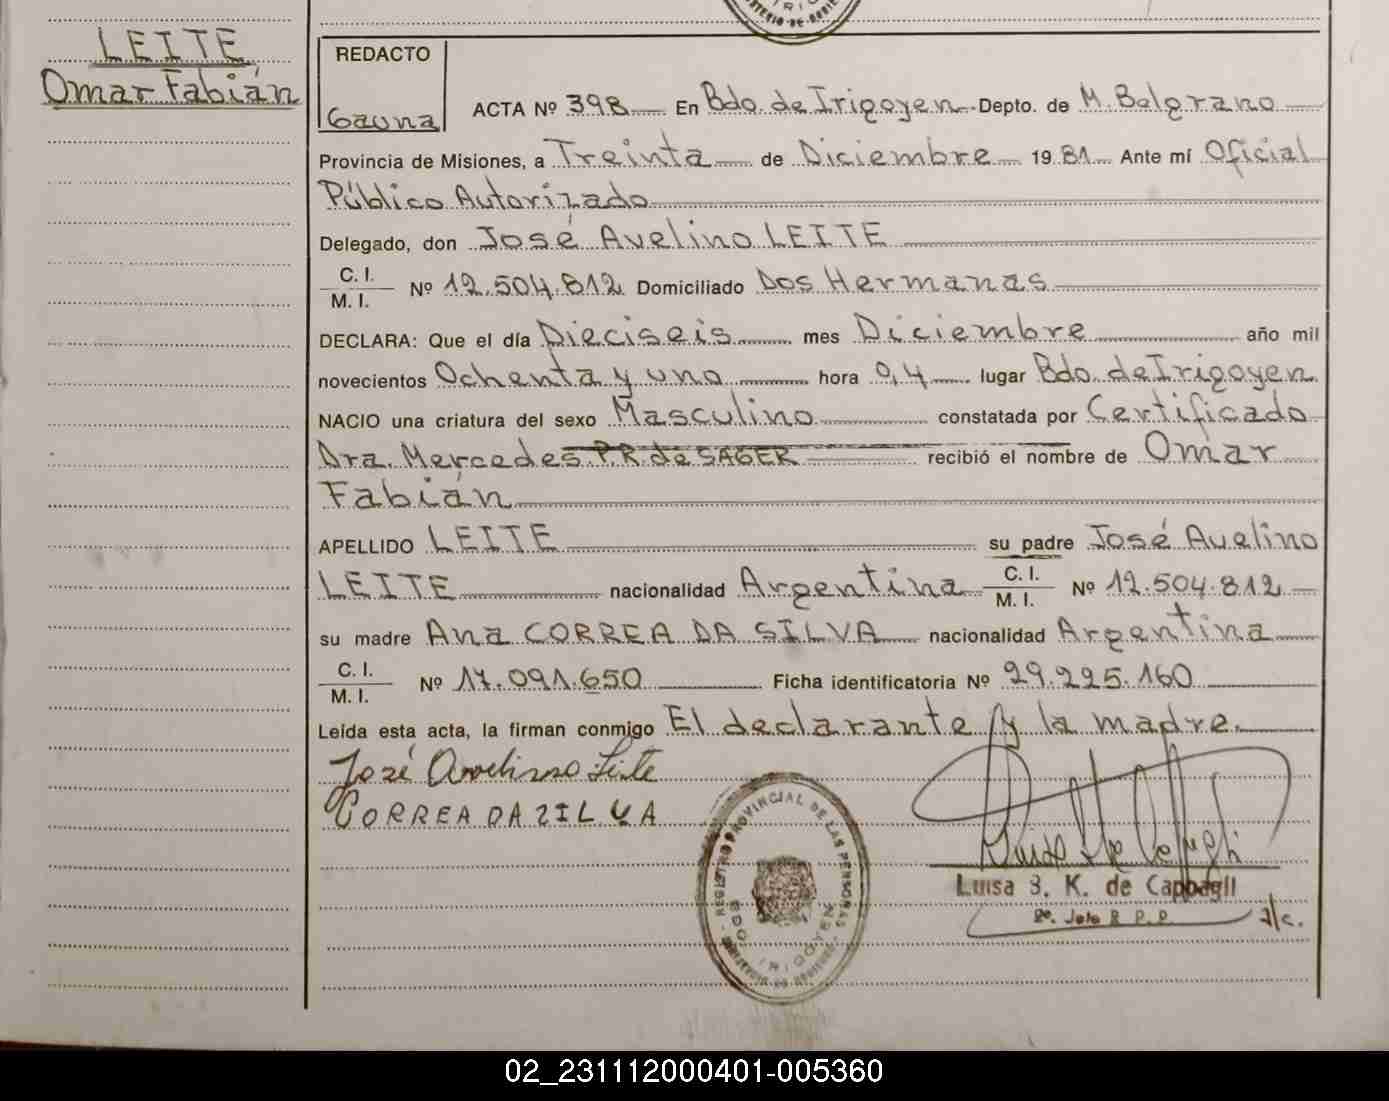 LEITE
Omar Fabián
REDACTO
Gauna
ACTA Nº 398 En Bdo. de Irigoyen Depto. de M. Belgrano
Provincia de Misiones, a Treinta de Diciembre 19 81 Ante mí Oficial
Público Autorizado
Delegado, don José Avelino LEITE
C. I.
M. I. Nº 12.504.812 Domiciliado Dos Hermanas
DECLARA: Que el día Dieciseis mes Diciembre año mil
novecientos Ochenta y uno hora 0,4 lugar Bdo. de Irigoyen
NACIO una criatura del sexo Masculino constatada por Certificado
Dra. Mercedes P.R. de SAGER recibió el nombre de Omar
Fabián
APELLIDO LEITE su padre José Avelino
LEITE nacionalidad Argentina C. I. M. I. Nº 12.504.812
su madre Ana CORREA DA SILVA nacionalidad Argentina
C. I.
M. I. Nº 17.091.650 Ficha identificatoria Nº 29.225.160
Leída esta acta, la firman conmigo El declarante y la madre.
José Avelino Leite
CORREA DA ZILVA
REGISTRO PROVINCIAL DE LAS PERSONAS
BDO. IRIGOYEN
Luisa B. K. de Cappagli
2º. Jefe R. P. P. a/c.
02_231112000401-005360